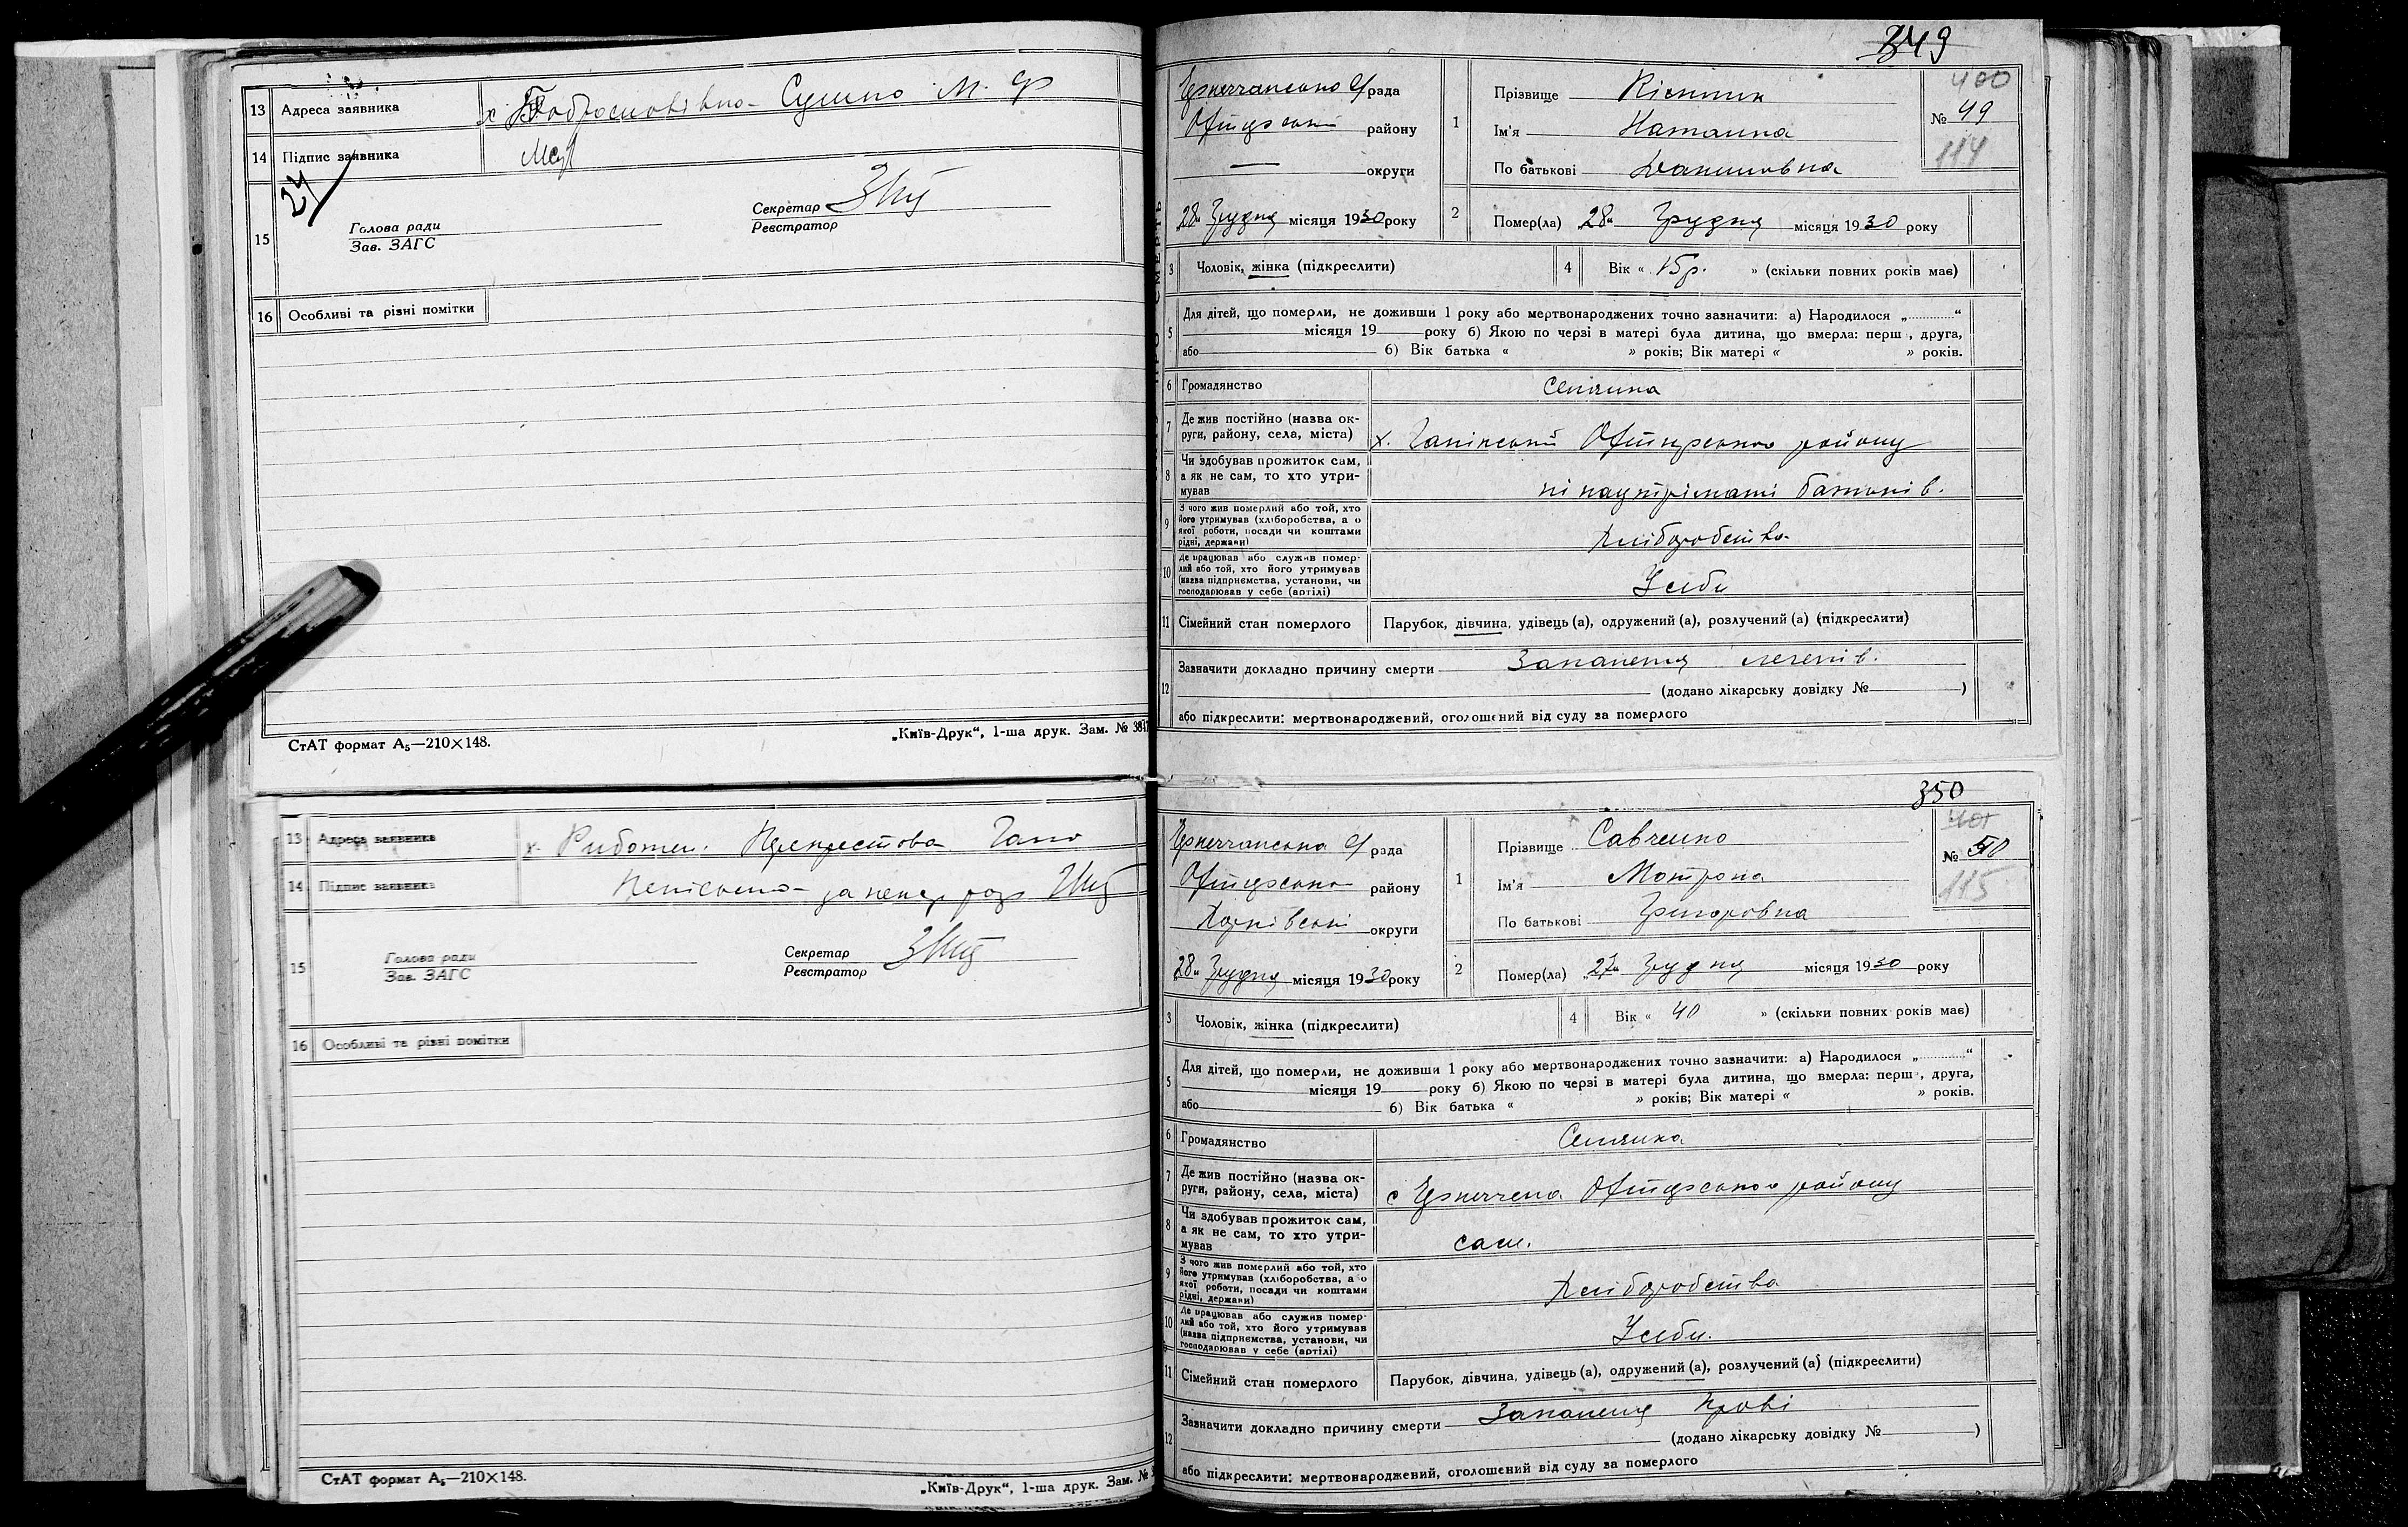 13 Адреса заявника
14 Підпис заявника
24
15 Голова ради
Зав. ЗАГС
Секретар
Реєстратор
16 Особливі та різні помітки
СтАТ формат А₅—210×148.
„Київ-Друк“, 1-ша друк. Зам. №
13 Адреса заявника
14 Підпис заявника
15 Голова ради
Зав. ЗАГС
Секретар
Реєстратор
16 Особливі та різні помітки
СтАТ формат А₅—210×148.
„Київ-Друк“, 1-ша друк. Зам. №
349
400
№ 49
114
рада
району
— округи
28 Грудня місяця 1930 року
1 Прізвище
Ім'я Наталка
По батькові Даниловна
2 Помер(ла) 28 Грудня місяця 1930 року
3 Чоловік, жінка (підкреслити)
4 Вік « 15 р. » (скільки повних років має)
5 Для дітей, що померли, не доживши 1 року або мертвонароджених точно зазначити: а) Народилося „ “
місяця 19 року б) Якою по черзі в матері була дитина, що вмерла: перш , друга,
або б) Вік батька « » років; Вік матері « » років.
6 Громадянство селянка
7 Де жив постійно (назва ок-
руги, району, села, міста) х. району
8 Чи здобував прожиток сам,
а як не сам, то хто утри-
мував батьків.
9 З чого жив померлий або той, хто
його утримував (хліборобства, а о
якої роботи, посади чи коштами
рідні, держави) Хліборобства
10 Де працював або служив помер-
лий або той, хто його утримував
(назва підприємства, установи, чи
господарював у себе (артілі) У себи
11 Сімейний стан померлого Парубок, дівчина, удівець (а), одружений (а), розлучений (а) (підкреслити)
12 Зазначити докладно причину смерти Запалення легенів.
(додано лікарську довідку № )
або підкреслити: мертвонароджений, оголошений від суду за померлого
350
401
№ 50
115
рада
району
Харківські округи
28 Грудня місяця 1930 року
1 Прізвище Савченко
Ім'я Мотрона
По батькові Григоровна
2 Помер(ла) 27 Грудня місяця 1930 року
3 Чоловік, жінка (підкреслити)
4 Вік « 40 » (скільки повних років має)
5 Для дітей, що померли, не доживши 1 року або мертвонароджених точно зазначити: а) Народилося „ “
місяця 19 року б) Якою по черзі в матері була дитина, що вмерла: перш , друга,
або б) Вік батька « » років; Вік матері « » років.
6 Громадянство Селянка
7 Де жив постійно (назва ок-
руги, району, села, міста) с району
8 Чи здобував прожиток сам,
а як не сам, то хто утри-
мував сам.
9 З чого жив померлий або той, хто
його утримував (хліборобства, а о
якої роботи, посади чи коштами
рідні, держави) Хліборобства
10 Де працював або служив помер-
лий або той, хто його утримував
(назва підприємства, установи, чи
господарював у себе (артілі) У себи.
11 Сімейний стан померлого Парубок, дівчина, удівець (а), одружений (а), розлучений (а) (підкреслити)
12 Зазначити докладно причину смерти Запаленя крові
(додано лікарську довідку № )
або підкреслити: мертвонароджений, оголошений від суду за померлого